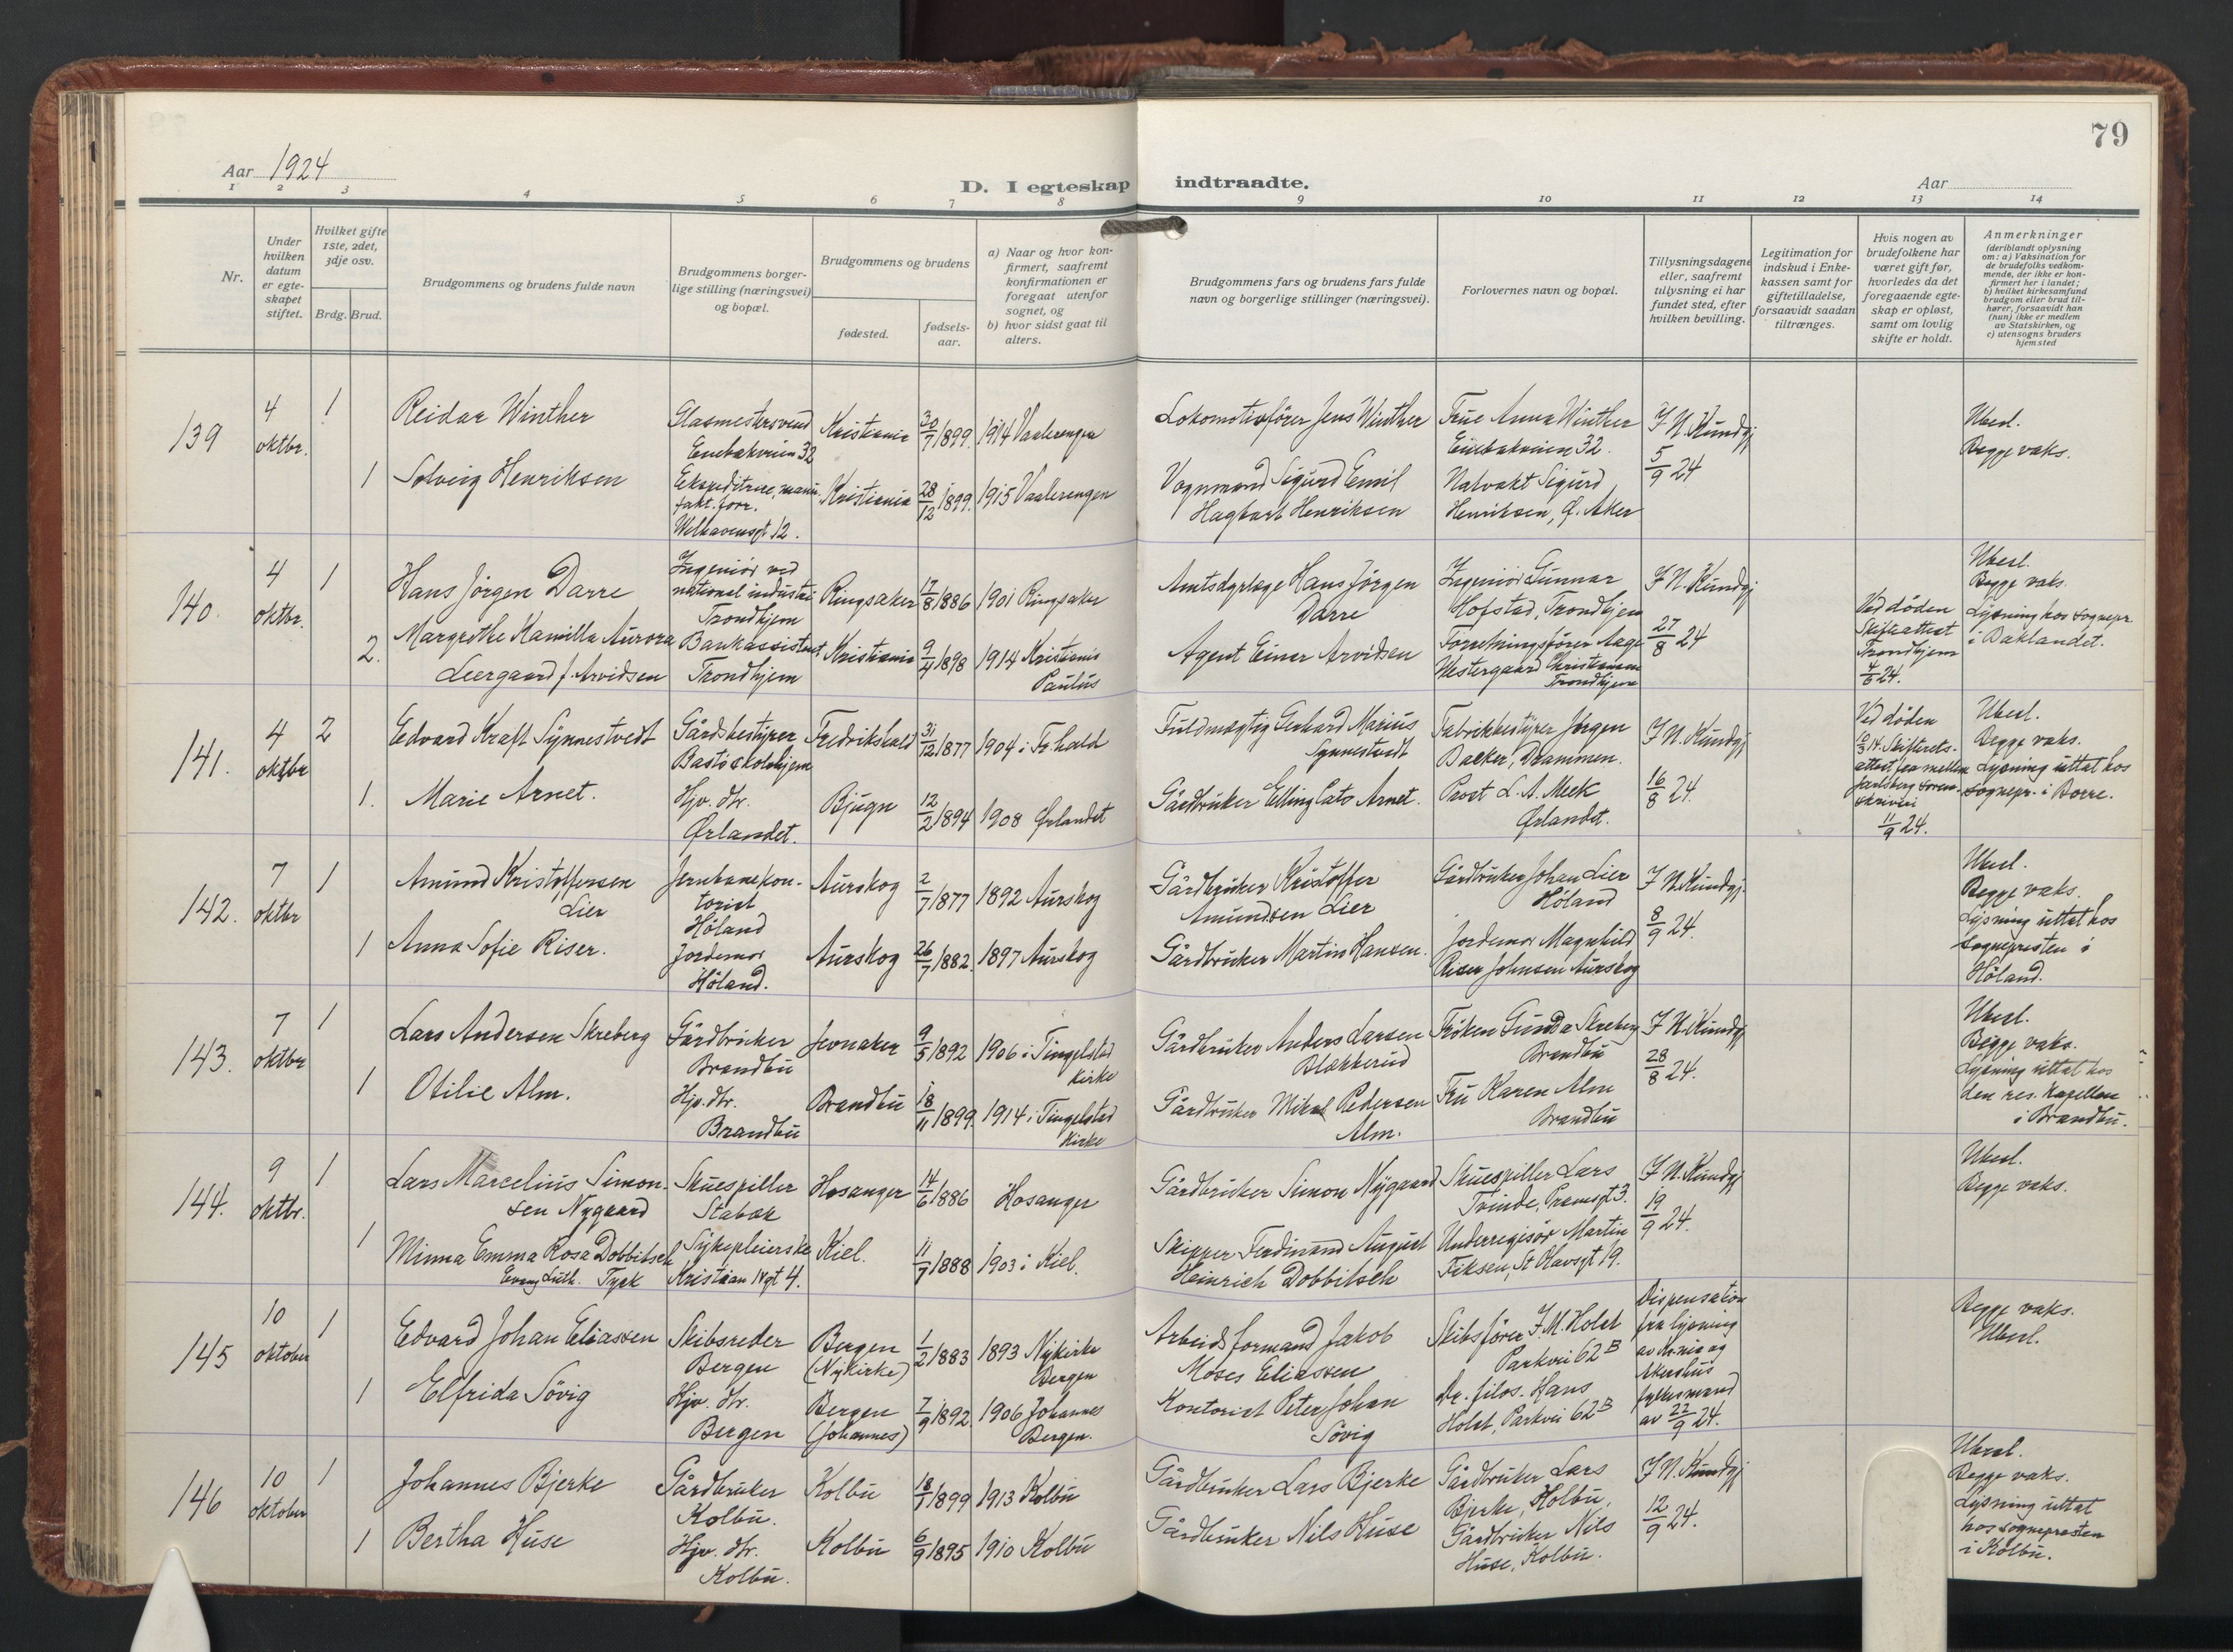 79
Aar 1924
D. I egteskap indtraadte.
Aar
1 2 3 4 5 6 7 8 9 10 11 12 13 14
Nr.
Under hvilken datum er egte-skapet stiftet.
Hvilket gifte 1ste, 2det, 3dje osv.
Brdg. Brud.
Brudgommens og brudens fulde navn
Brudgommens borger-lige stilling (næringsvei) og bopæl.
Brudgommens og brudens
fødested.
fødsels-aar.
a) Naar og hvor kon-firmert, saafremt konfirmationen er foregaat utenfor sognet, og
b) hvor sidst gaat til alters.
Brudgommens fars og brudens fars fulde navn og borgerlige stillinger (næringsvei).
Forlovernes navn og bopæl.
Tillysningsdagene eller, saafremt tillysning ei har fundet sted, efter hvilken bevilling.
Legitimation for indskud i Enke-kassen samt for giftetilladelse, forsaavidt saadan tiltrænges.
Hvis nogen av brudefolkene har været gift før, hvorledes da det foregaaende egte-skap er opløst, samt om lovlig skifte er holdt.
Anmerkninger (deriblandt oplysning om: a) Vaksination for de brudefolks vedkom-mende, der ikke er kon-firmert her i landet; b) hvilket kirkesamfund brudgom eller brud til-hører, forsaavidt han (hun) ikke er medlem av Statskirken, og c) utensogns bruders hjemsted
139 4 oktbr. 1 Reidar Winther Glasmestersvend Enebakveien 32 Kristiania 30/7 1899. 1914 Vaalerengen Lokomotivfører Jens Winther Frue Anna Winther Enebakveien 32. J N. Kundgj 5/9 24 Ubesl. Begge vaks.
1 Solveig Henriksen Ekspeditrise, manu-fakt. forr. Welhavensgt 12. Kristiania 28/12 1899. 1915 Vaalerengen Vognmand Sigurd Emil Hagbart Henriksen Natvakt Sigurd Henriksen, Ø. Aker
140. 4 oktbr. 1 Hans Jörgen Darre Ingeniör ved national industri Trondhjem Ringsaker 17/8 1886 1901 Ringsaker Amtsdyrlæge Hans Jörgen Darre Ingeniör Gunnar Hofstad, Trondhjem J N. Kundgj 27/8 24 Ved döden Skifteattest Trondhjem 4/6 24. Ubesl. Begge vaks. Lysning hos sognepr. i Baklandet.
2. Margrethe Kamilla Aurora Leergaard f. Arvidsen Bankassistent Trondhjem Kristiania 9/4 1898 1914 Kristiania Paulus Agent Einar Arvidsen Forretningsfører Aage Westergaard Christensen Trondhjem
141. 4 oktbr 2 Edvard Kraft Synnestvedt Gårdsbestyrer Bastö skolehjem Fredrikshald 31/12 1877 1904 i Fr.hald Fuldmægtig Gerhard Marius Synnestvedt Fabrikbestyrer Jørgen Backer, Drammen. J N. Kundgj 16/8 24. Ved døden Skifterets-attest fra mellem Jarlsberg Soren-skriveri 11/9 24. Ubesl. Begge vaks. Lysning uttat hos sognepr. i Borre.
1. Marie Arnet. Hjv. dtr. Ørlandet. Bjugn 12/2 1894 1908 Ørlandet Gårdbruker Elling Cats Arnet. Prost L. A. Meek Ørlandet.
142. 7 oktbr 1 Amund Kristoffersen Lier Jernbanekon-torist Höland Aurskog 2/7 1877 1892 Aurskog Gårdbruker Kristoffer Amundsen Lier Gårdbruker Johan Lier Höland J N. Kundgj. 8/9 24. Ubesl. Begge vaks. Lysning uttat hos sognepresten i Höland.
1 Anna Sofie Riser. Jordemor Höland. Aurskog 26/7 1882. 1897 Aurskog Gårdbruker Martin Hansen. Jordemor Magnhild Riser Johnsen Aurskog
143. 7 oktbr 1 Lars Andersen Skreberg Gårdbruker Brandbu Jevnaker 9/5 1892 1906 i Tingelstad Kirke Gårdbruker Anders Larsen Blækkerud Fröken Gunda Skreberg Brandbu J N. Kundgj 28/8 24. Ubesl. Begge vaks. Lysning uttat hos den res. Kapellan i Brandbu.
1 Otilie Alm. Hjv. dtr. Brandbu Brandbu 18/11 1899 1914 i Tingelstad Kirke Gårdbruker Mikal Pedersen Alm. Fru Karen Alm Brandbu
144. 9 oktbr. 1 Lars Marcelius Simon-sen Nygaard Skuespiller Stabæk Hosanger 14/6 1886 Hosanger Gårdbruker Simon Nygaard Skuespiller Lars Tvinde, Pramsgt 3. J N. Kundgj 19/9 24. Ubesl. Begge vaks.
1 Minna Emma Rosa Dobbitsch Evang Luth. Tysk Sykepleierske Kristian IVgt 4. Kiel. 11/7 1888 1903 i Kiel. Skipper Ferdinand August Heinrich Dobbitsch Underregisör Martin Fiksen, St Olavsgt 19.
145 10 oktober 1 Edvard Johan Eliassen Skibsreder Bergen Bergen (Nykirke) 1/2 1883 1893 Nykirke Bergen Arbeidsformand Jakob Moses Eliassen Skibsfører J. M. Holst Parkvei 62B Dispensation fra lysning av Kr.nia og Akershus fylkesmand av 22/9 24. Begge vaks. Ubesl.
1 Elfrida Sövig Hjv. dtr. Bergen Bergen (Johannes) 7/9 1892. 1906 Johannes Bergen. Kontorist Peter Johan Sövig Dr. filos. Hans Holst, Parkvei 62B
146 10 oktober 1 Johannes Bjerke Gårdbruker Kolbu. Kolbu 18/1 1899 1913 Kolbu Gårdbruker Lars Bjerke Gårdbruker Lars Bjerke, Kolbu. J N. Kundgj 12/9 24. Ubesl. Begge vaks. Lysning uttat hos sognepresten i Kolbu.
1 Bertha Huse Hjv. dtr. Kolbu. Kolbu 6/9 1895 1910 Kolbu Gårdbruker Nils Huse Gårdbruker Nils Huse, Kolbu.